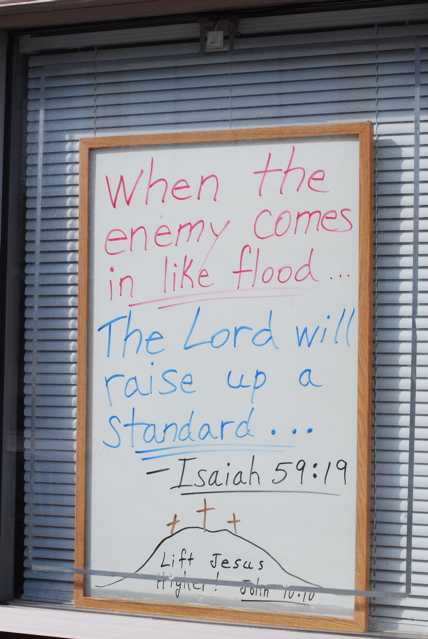 When the
enemy comes
in like flood...
The Lord will
raise up a
standard...
- Isaiah 59:19
Lift Jesus
Higher! John 10:10